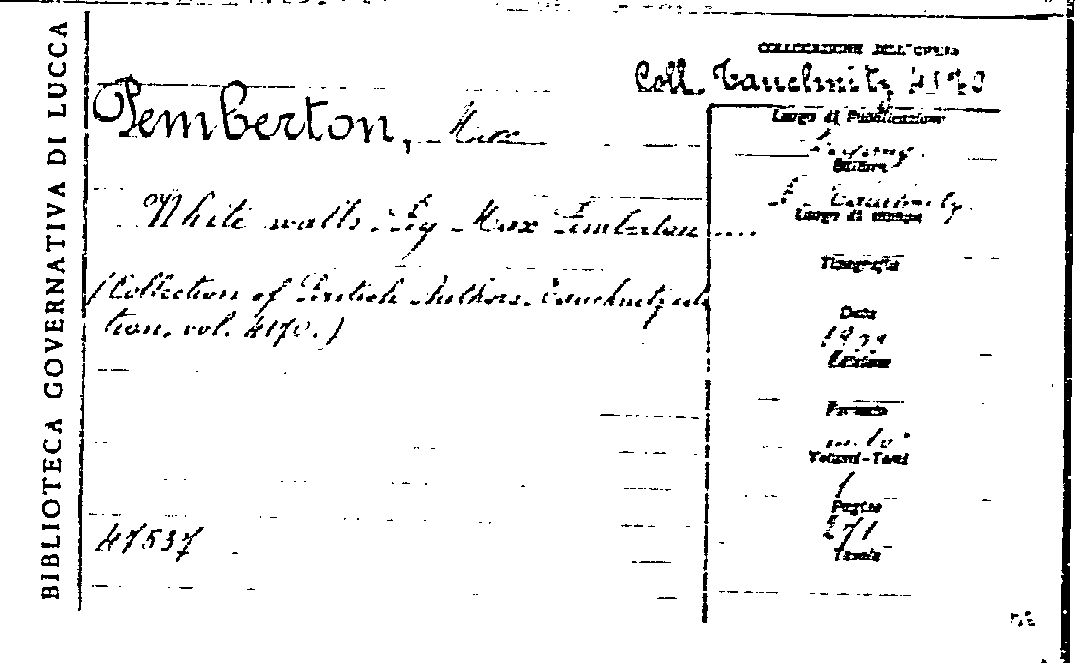 BIBLIOTECA GOVERNATIVA DI LUCCA
COLLOCAZIONE DELL'OPERA
Coll. Tauchnitz 4170
Pemberton, Max
Luogo di Pubblicazione
Editore
White walls. By Max Pemberton....
Luogo di stampa
Tipografia
(Collection of British Authors. Tauchnitz edi
tion, vol. 4170.)
Data
Edizione
Formato
in-16°
Volumi-Tomi
1
Pagine
271
Tavole
47537